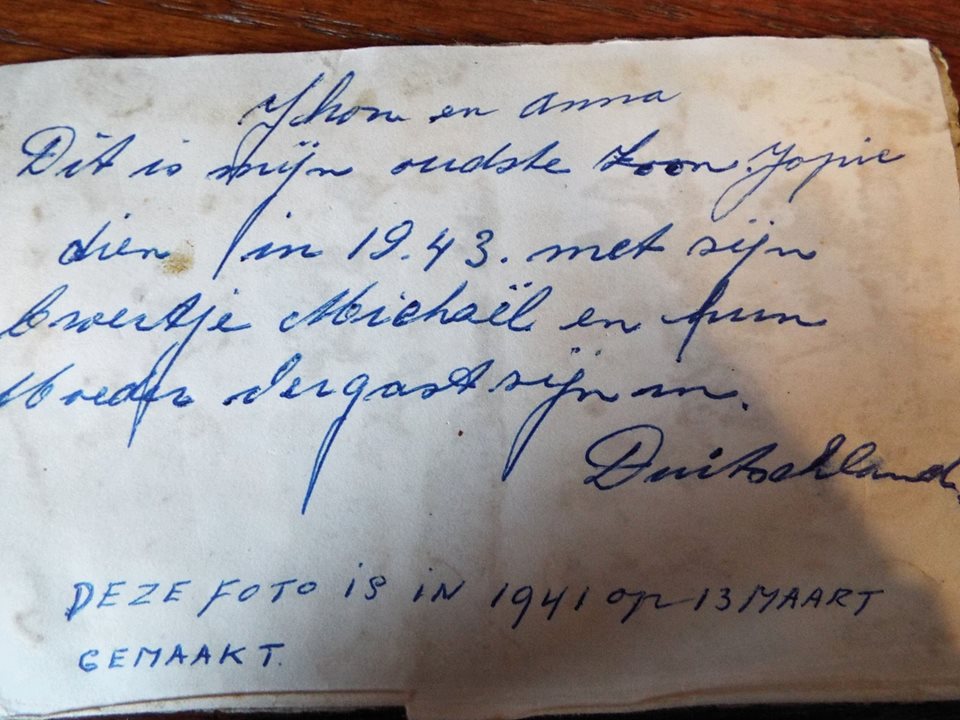 Jhon en Anna
Dit is mijn oudste zoon. Jopie
dien in 19.43. met sijn
broertje Michaël en hun
Moeder vergast sijn in.
Duitschland.
DEZE FOTO IS IN 1941 OP 13 MAART
GEMAAKT.